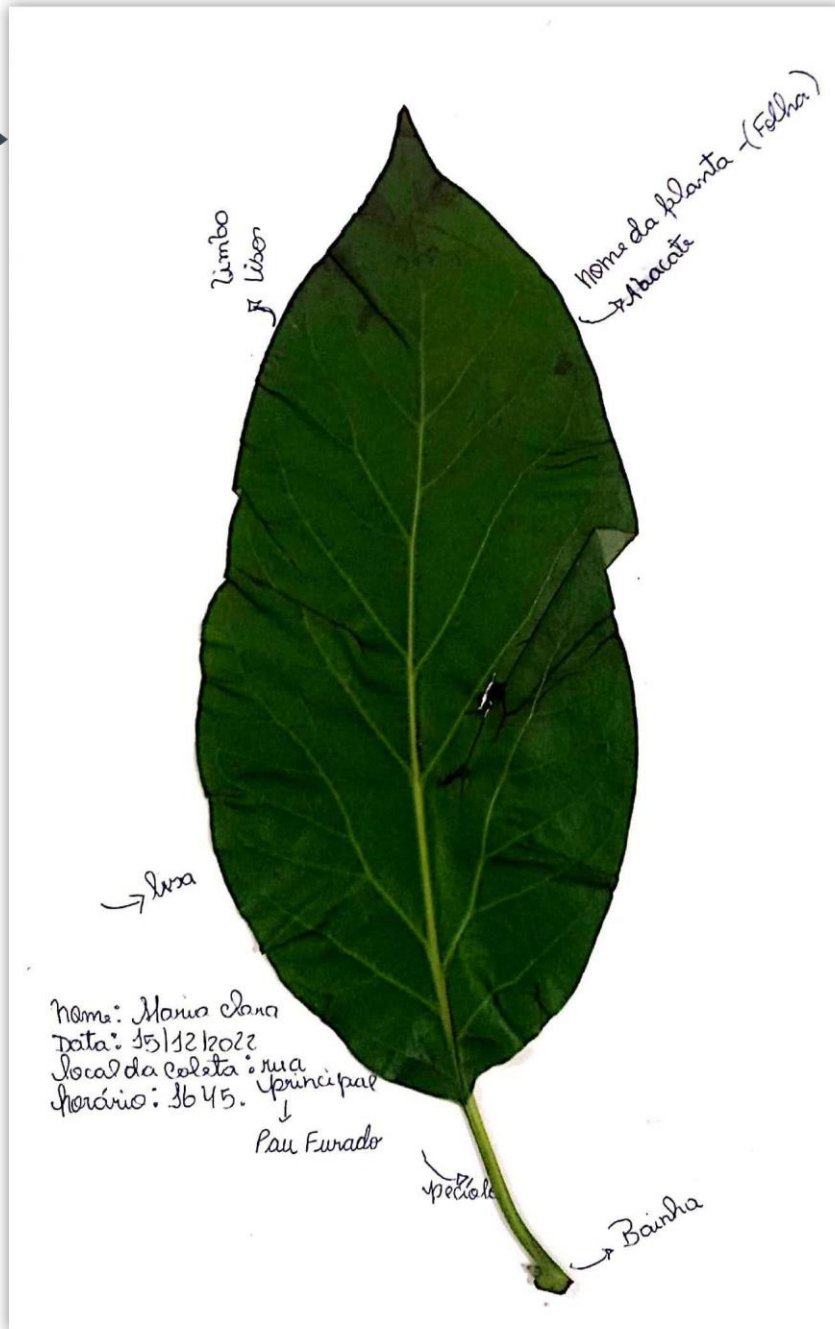 Limbo
Liso
nome da planta - (Folha)
Abacate
lisa
nome: Maria Clara
Data: 15/12/2022
local da coleta: rua
principal
horário: 16 45.
Pau Furado
pecíolo
Bainha